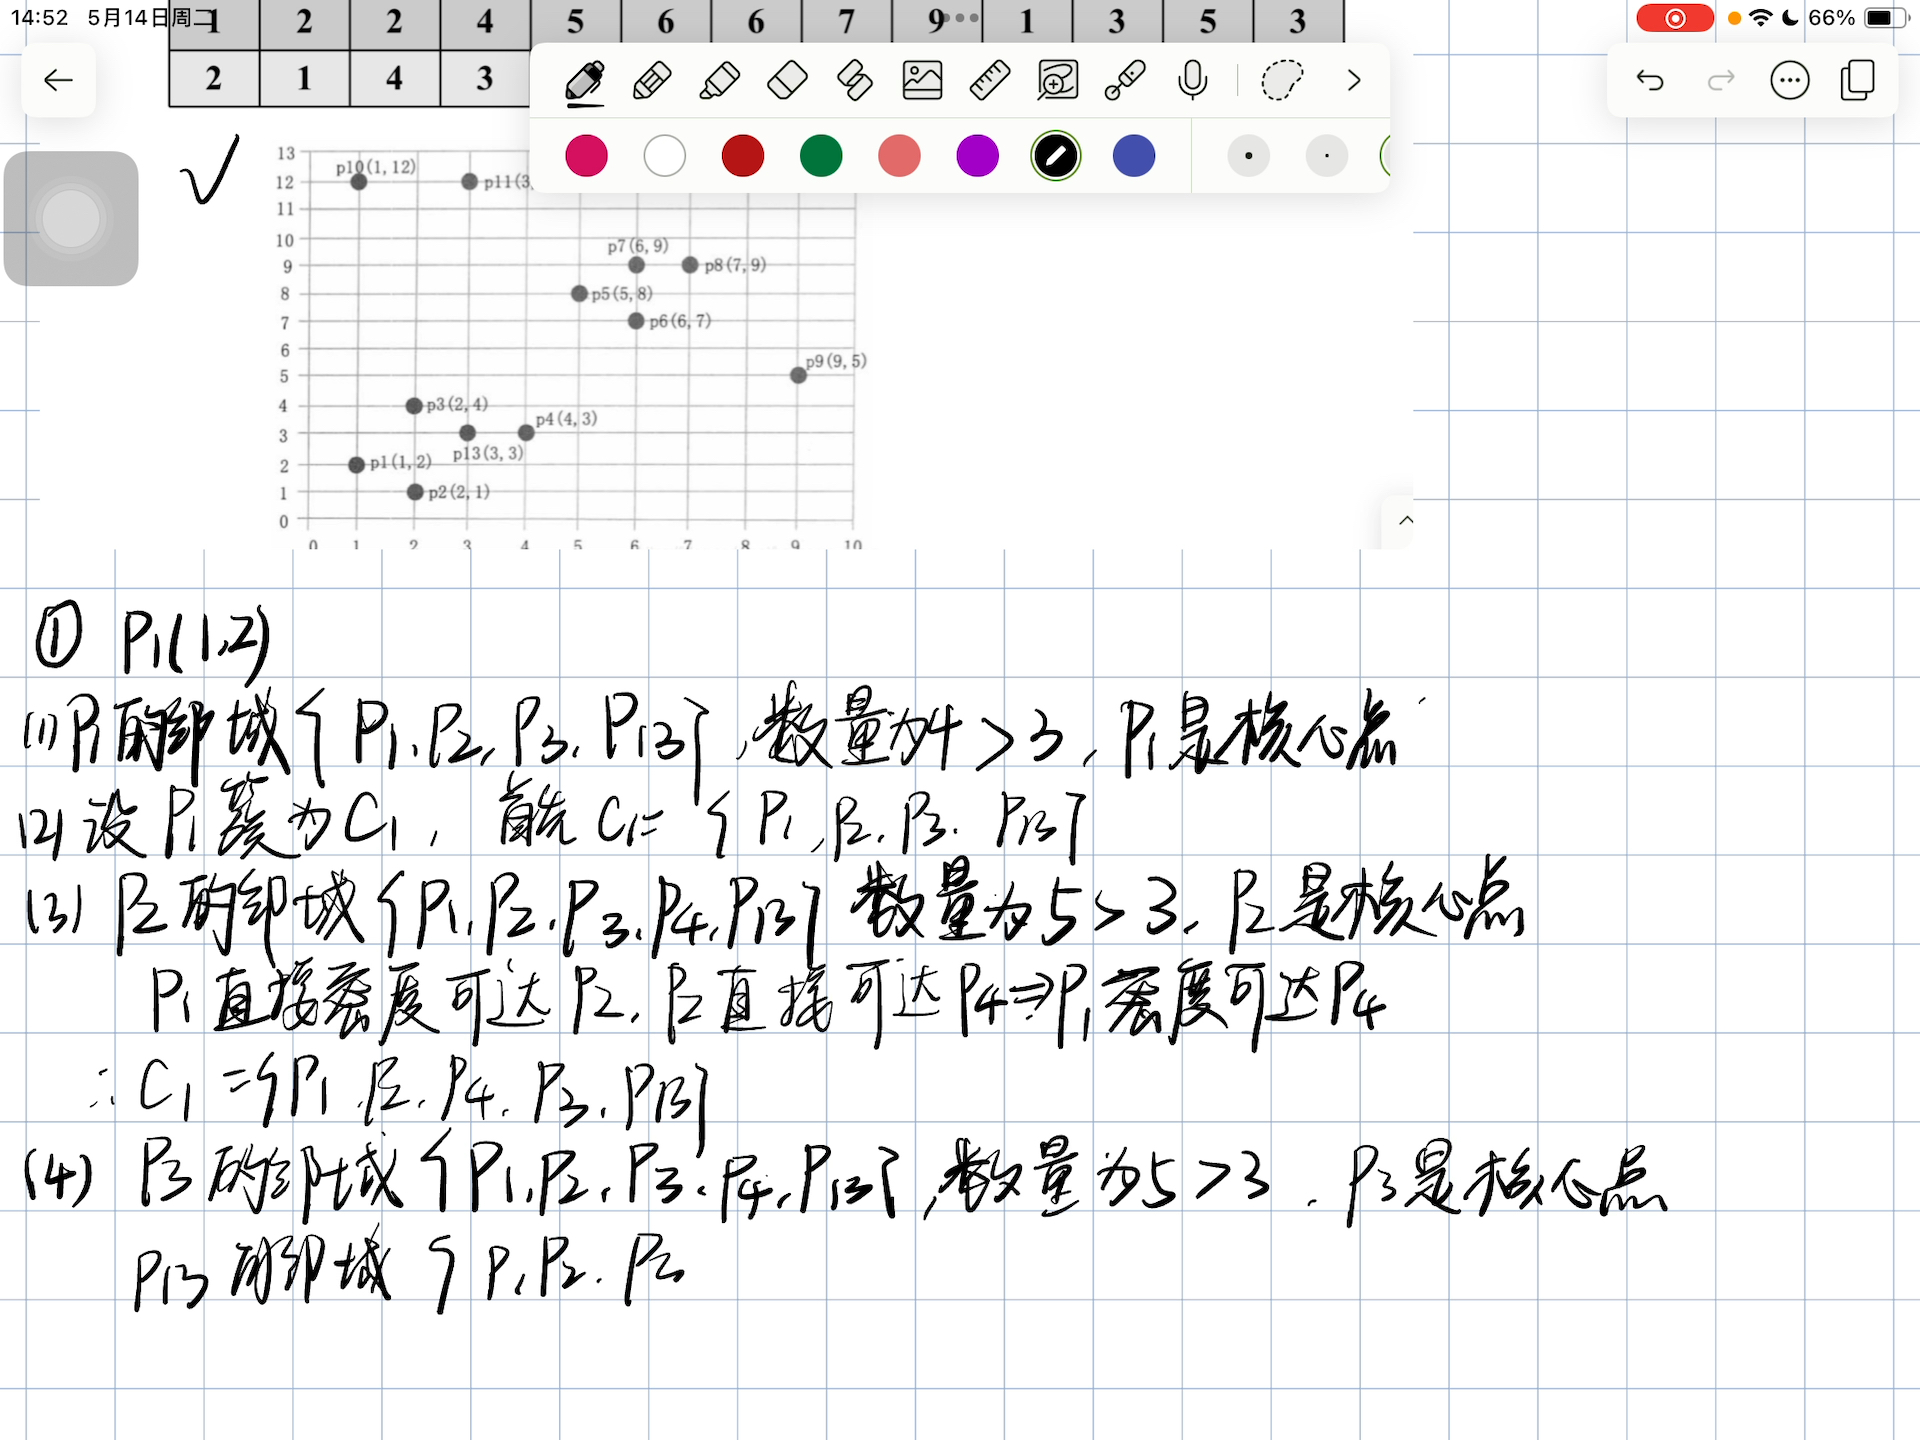 14:52 5月14日周二
66%
1 2 2 4 5 6 6 7 9 1 3 5 3
2 1 4 3
13
12
11
10
9
8
7
6
5
4
3
2
1
0
p10(1, 12)
p11(3,
p7(6, 9)
p8(7, 9)
p5(5, 8)
p6(6, 7)
p9(9, 5)
p3(2, 4)
p4(4, 3)
p13(3, 3)
p1(1, 2)
p2(2, 1)
0 1 2 3 4 5 6 7 8 9 10
① P1(1,2)
(1) P1的邻域{P1,P2,P3,P13},数量为4>3,P1是核心点
(2) 设P1簇为C1, 首先C1={P1,P2,P3,P13}
(3) P2的邻域{P1,P2,P3,P4,P13} 数量为5>3,P2是核心点
P1直接密度可达P2,P2直接可达P4⇒P1密度可达P4
∴C1={P1,P2,P4,P3,P13}
(4) P3的邻域{P1,P2,P3,P4,P13},数量为5>3,P3是核心点
P13的邻域{P1,P2,P3